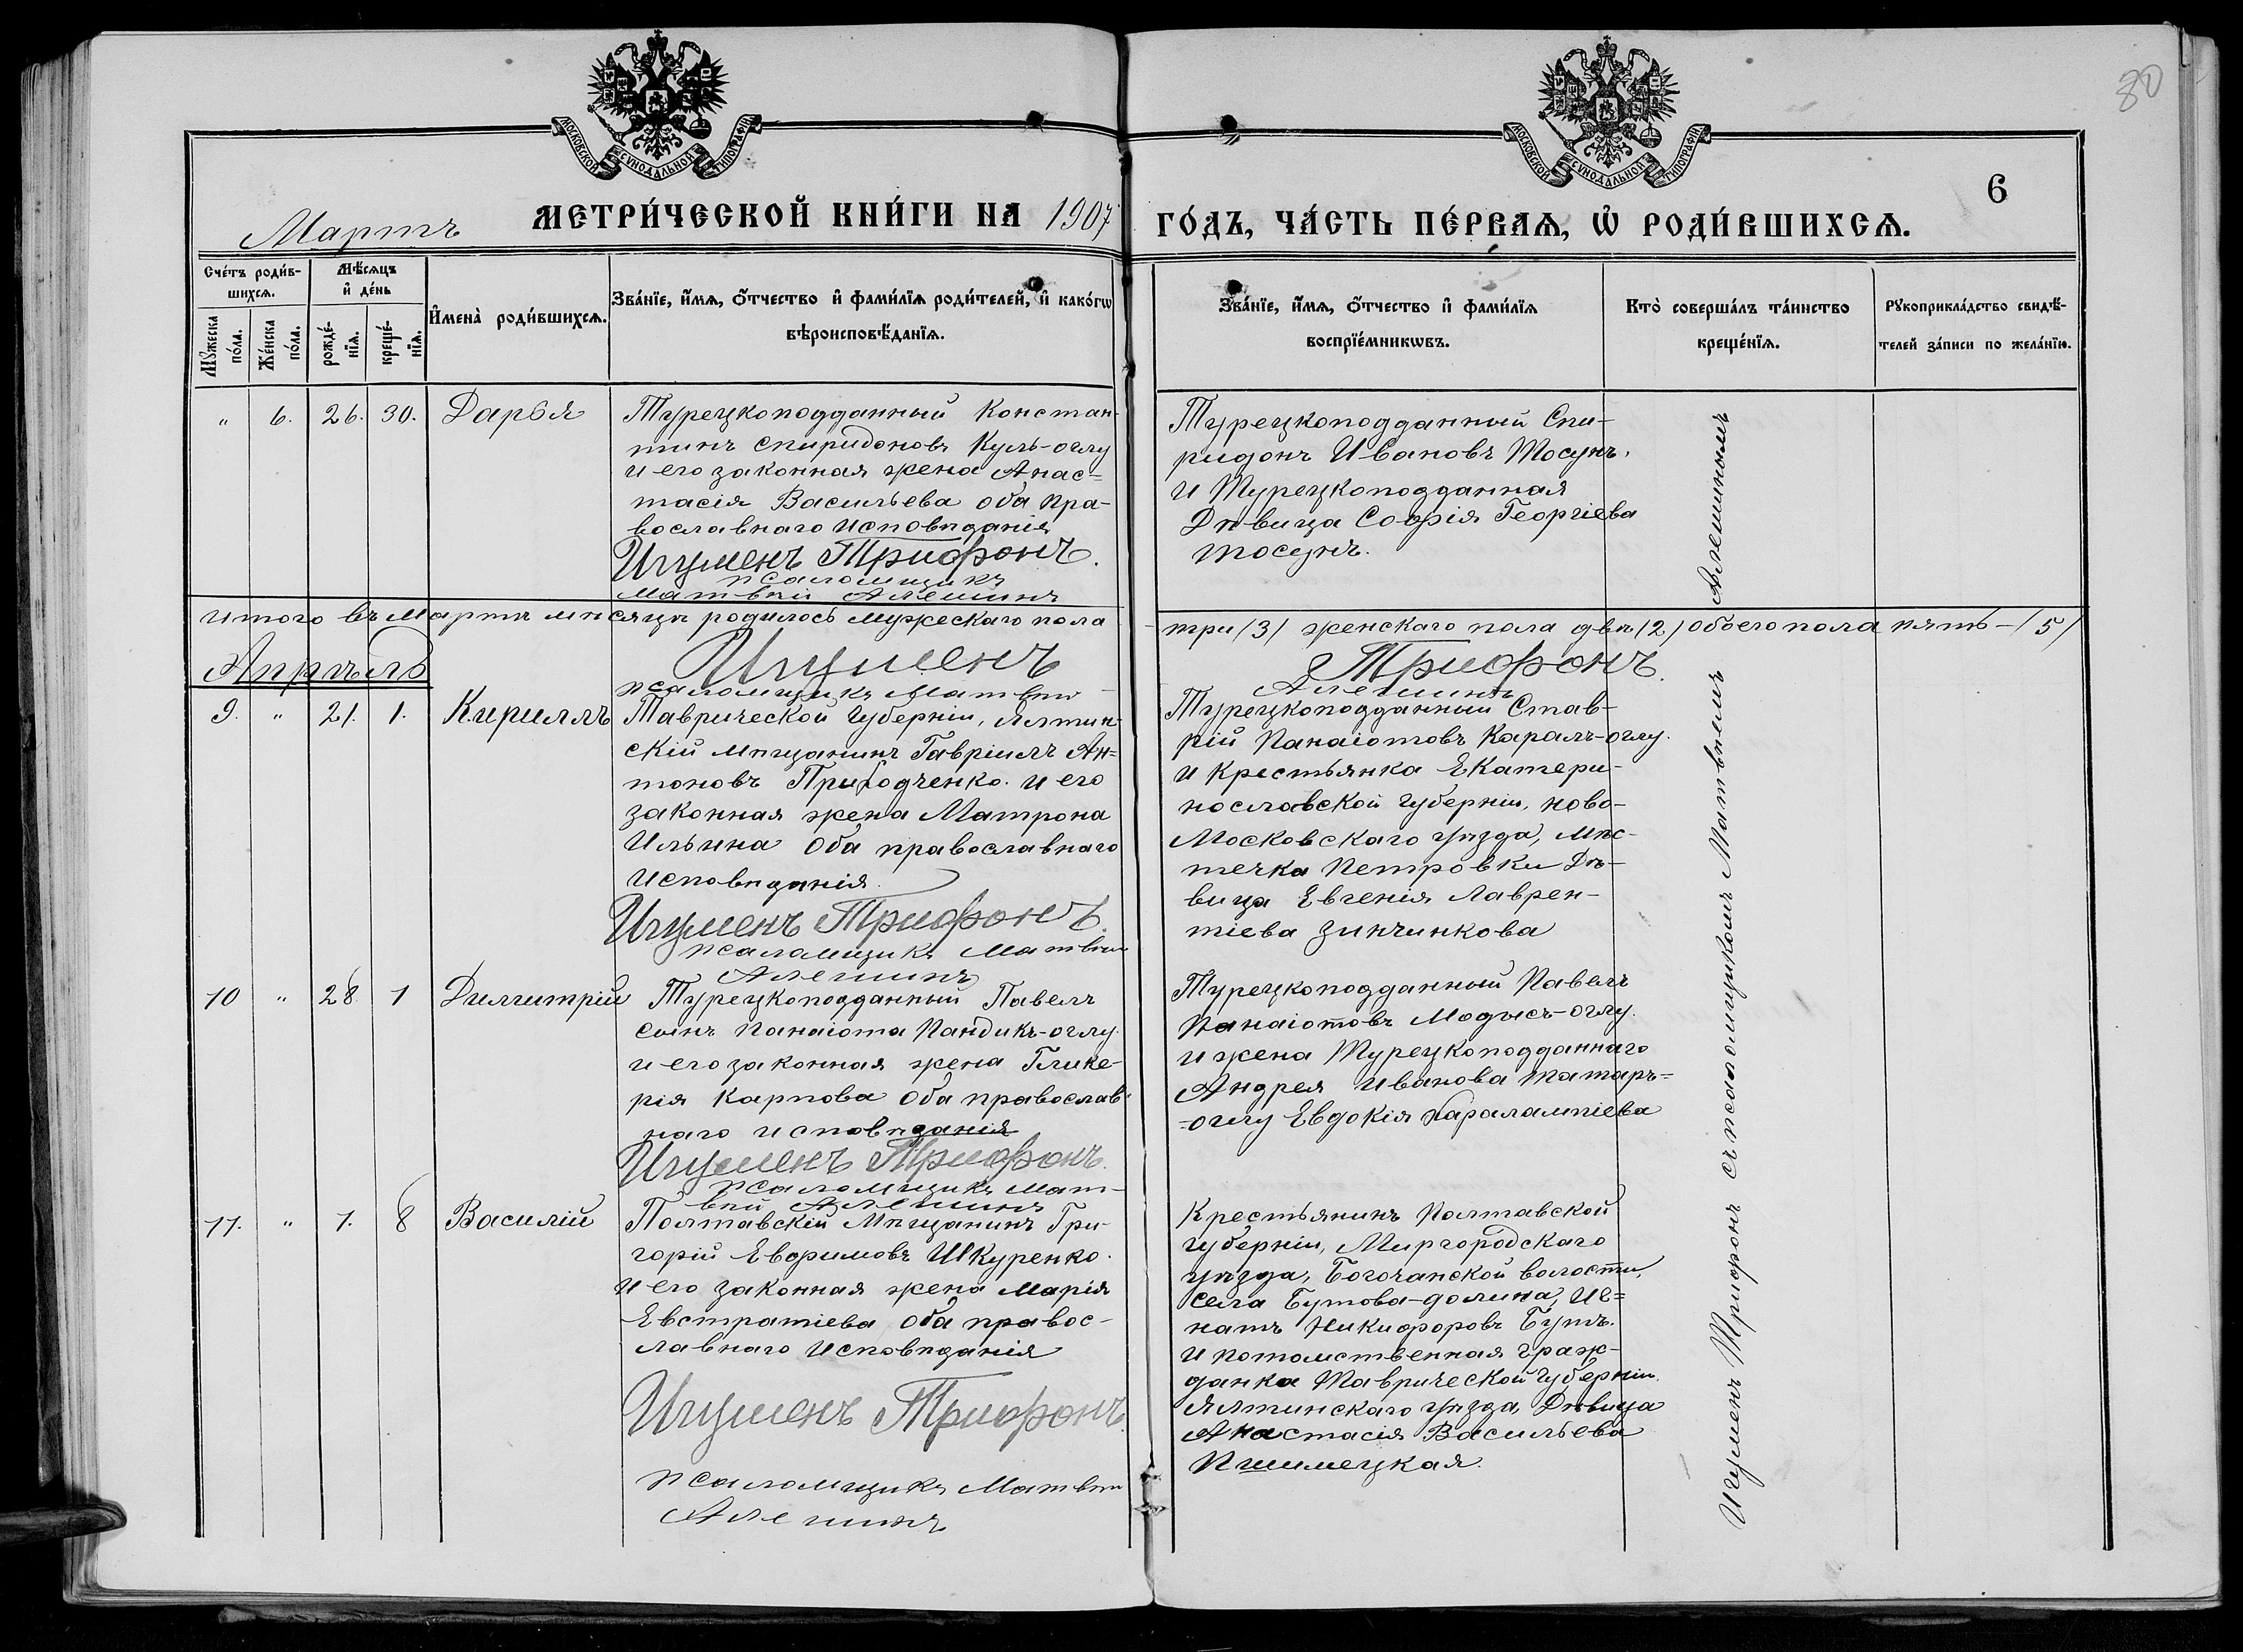 80
МОСКОВСКОЙ СѴНОДАЛЬНОЙ ТИПОГРАФІИ
МОСКОВСКОЙ СѴНОДАЛЬНОЙ ТИПОГРАФІИ
6
Мартъ
МЕТРИ́ЧЕСКОЙ КНИ́ГИ НА 1907 ГО́ДЪ, ЧА́СТЬ ПЕ́РВАѦ, Ѡ҆ РОДИ́ВШИХСѦ.
Сче́тъ роди́в-
шихсѧ.
Мꙋ́жеска по́ла.
Же́нска по́ла.
Мѣ́сѧцъ
и҆ де́нь
рожде́-
нїѧ.
креще́-
нїѧ.
И҆мена̀ роди́вшихсѧ.
Зва́нїе, и҆́мѧ, ѻ҆́тчество и҆ фами́лїѧ роди́телей, и҆ како́гѡ
вѣроисповѣ́данїѧ.
Зва́нїе, и҆́мѧ, ѻ҆́тчество и҆ фами́лїѧ
воспрїе́мникѡвъ.
Кто̀ соверша́лъ та́инство
креще́нїѧ.
Рꙋкоприкла́дство свидѣ́-
телей за́писи по жела́нїю.
" 6. 26. 30. Дарья
Турецкоподданный Констан-
тинъ Спиридоновъ Куль-оглу
и его законная жена Анас=
тасія Васильева оба пра-
вославнаго исповѣданія
Игуменъ Трифонъ.
псаломщикъ
Матвѣй Алешинъ
Турецкоподданный Спи-
ридонъ Ивановъ Тосунъ.
и Турецкоподданная
Дѣвица Софія Георгіева
Тосунъ.
итого въ мартѣ мѣсяцѣ родилось мужескаго пола три /3/ женскаго пола двѣ /2/ обоего пола пять - /5/
Игуменъ Трифонъ.
псаломщикъ Матвѣй Алешинъ
Апрѣль
9. " 21. 1. Кириллъ
Таврической губерніи, Ялтин-
скій мѣщанинъ Гавріилъ Ан=
тоновъ Приходченко. и его
законная жена Матрона
Ильина оба православнаго
исповѣданія.
Игуменъ Трифонъ.
псаломщикъ Матвѣй
Алешинъ
Турецкоподданный Став-
рій Панаіотовъ Каралъ-оглу.
и крестьянка Екатери-
нославской губерніи, ново-
Московскаго уѣзда, мѣс-
течка Петровки Дѣ-
вица Евгенія Лаврен-
тіева Зинчинкова
10 " 28. 1 Димитрій
Турецкоподданный Павелъ
сынъ Панаіота Пандикъ-оглу.
и его законная жена Глике-
рія Карпова оба православ-
наго исповѣданія
Игуменъ Трифонъ.
псаломщикъ Мат-
вѣй Алешинъ
Турецкоподданный Павелъ
Панаіотовъ Модысъ-оглу.
и жена Турецкоподданнаго
Андрея Иванова Татаръ=
-оглу Евдокія Харалампіева
11. " 1. 8 Василій
Полтавскій Мѣщанинъ Гри-
горій Евфимовъ Шкуренко.
и его законная жена Марія
Евстратіева оба правос-
лавнаго исповѣданія
Игуменъ Трифонъ.
псаломщикъ Матвѣй
Алешинъ
Крестьянинъ Полтавской
губерніи, Миргородскаго
уѣзда, Богочанской волости,
села Бутова-долина, Иг=
натъ Никифоровъ Бутъ.
и потомственная граж-
данка Таврической губерніи
Ялтинскаго уѣзда, Дѣвица
Анастасія Васильева
Пшимецкая.
Игуменъ Трифонъ съ псаломщикомъ Матвѣемъ Алешинымъ